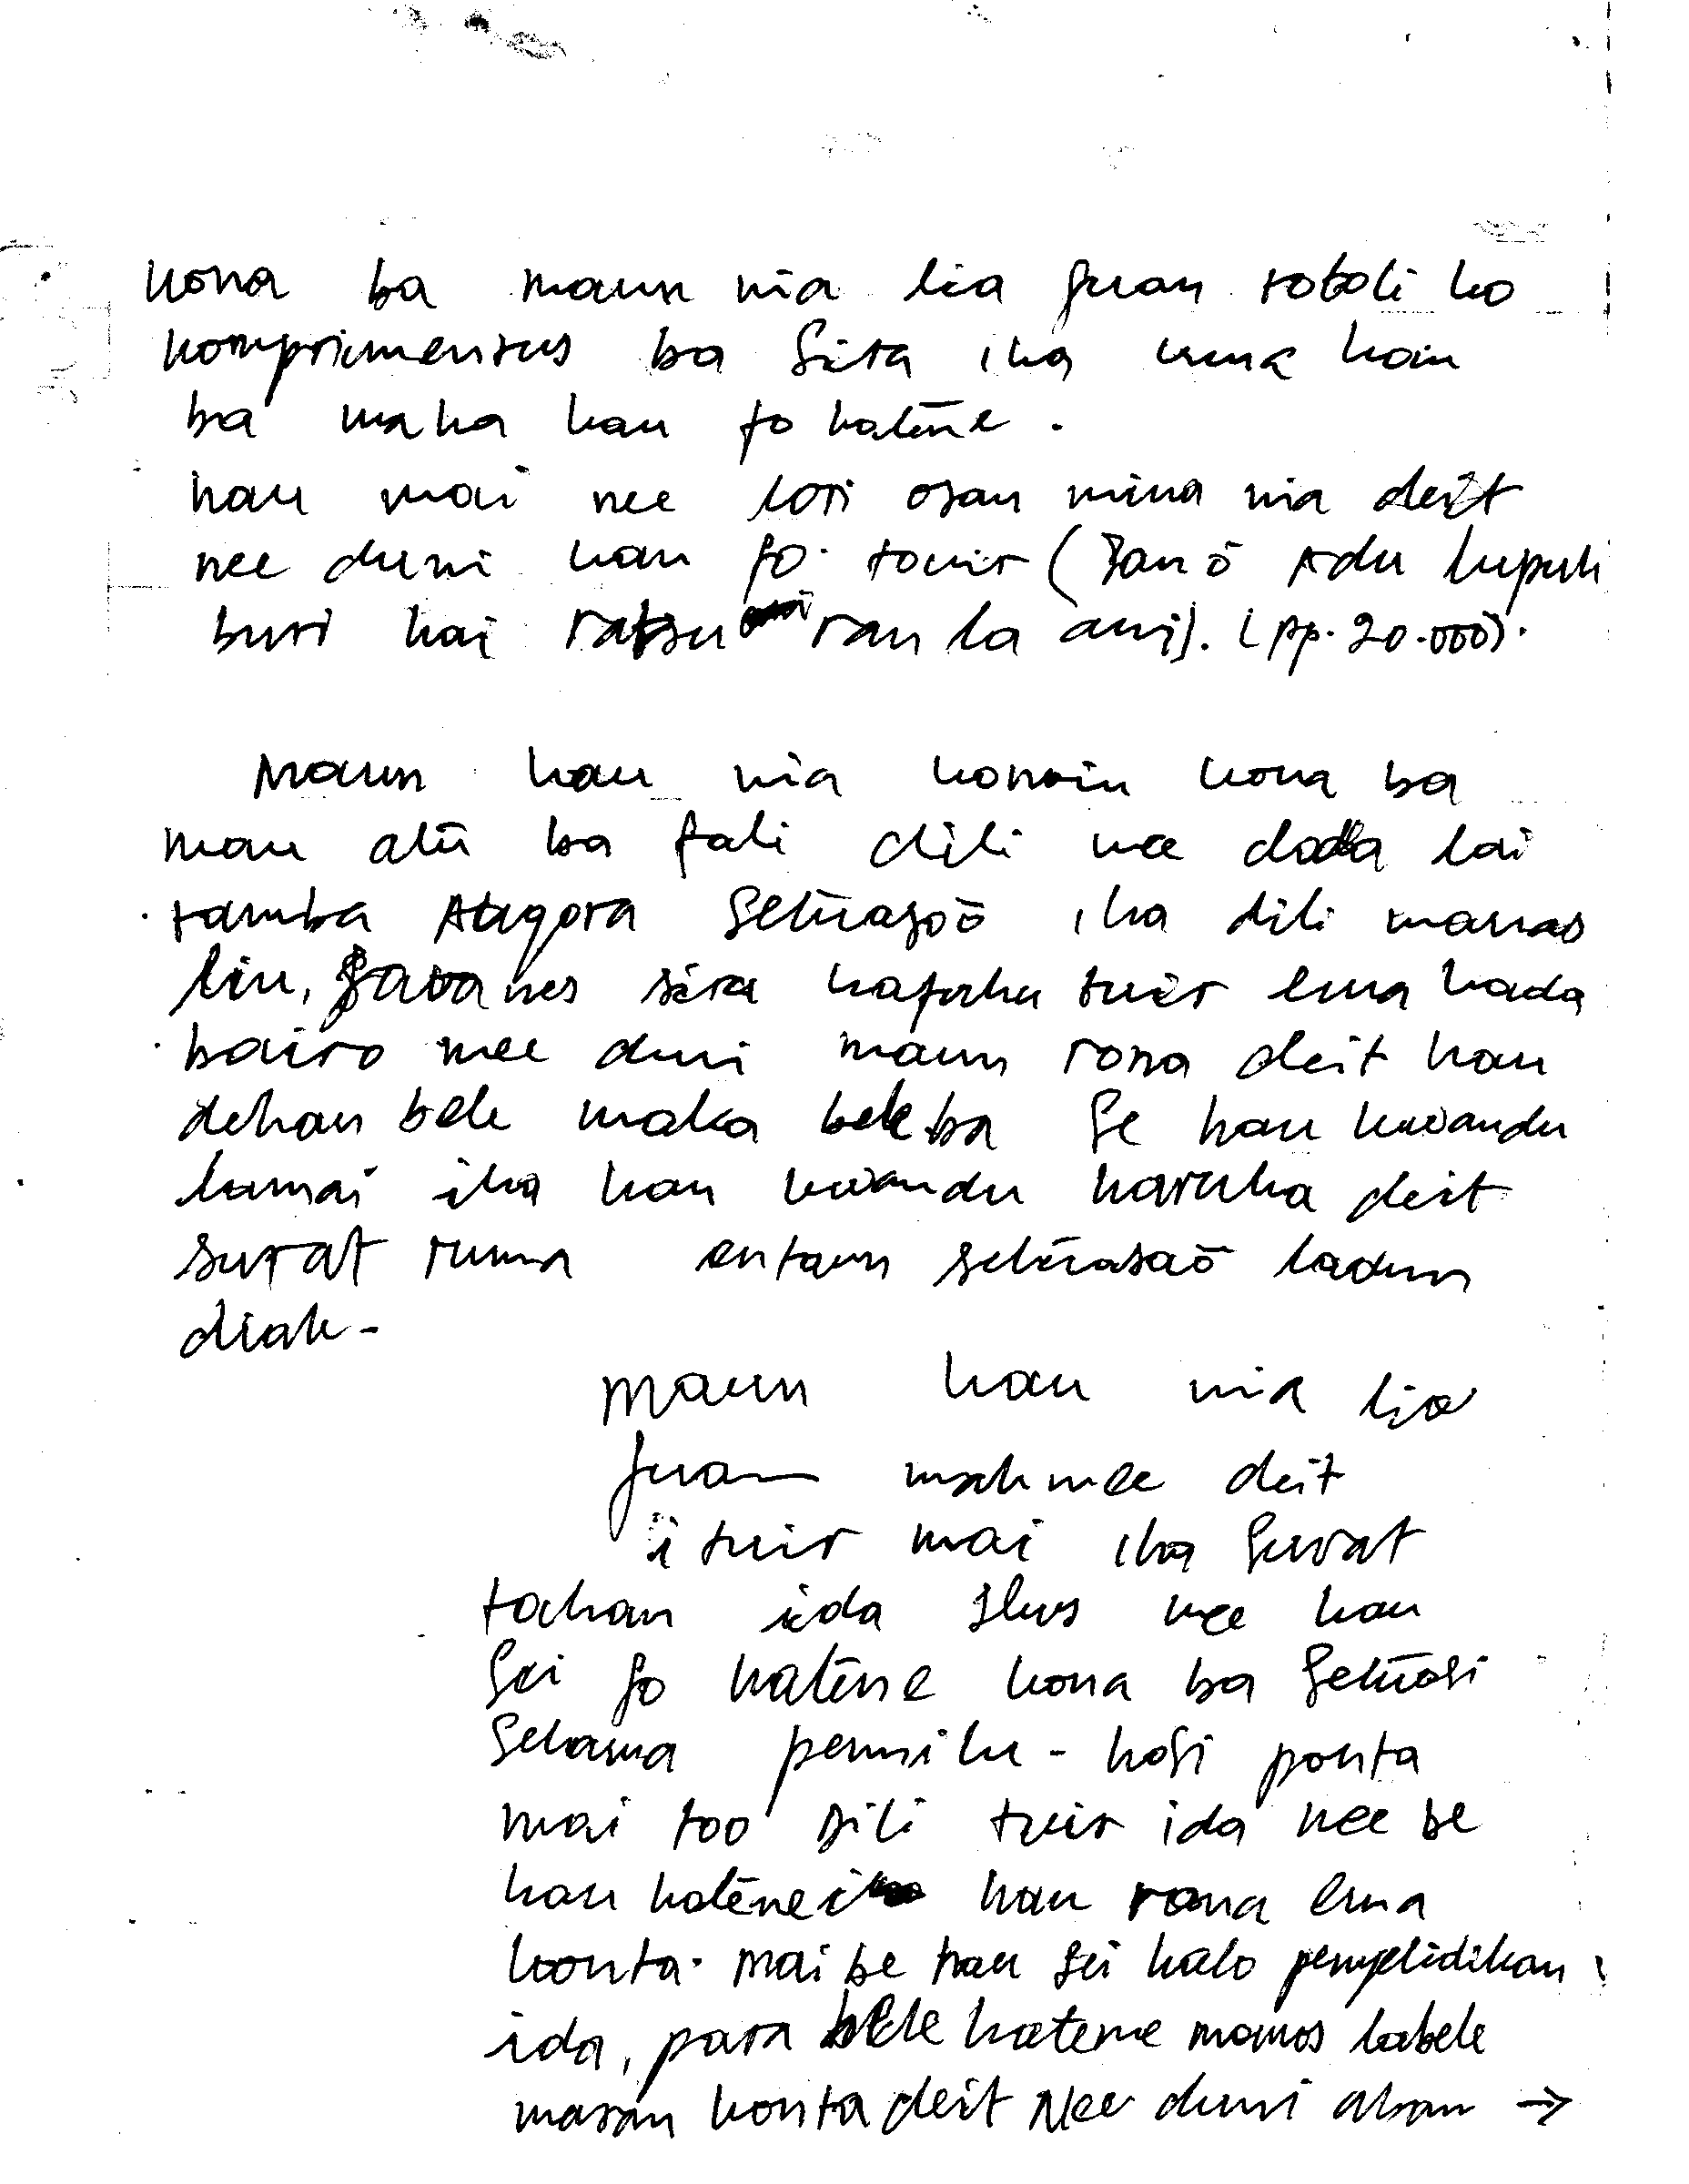 kona ba maun nia lia fuan totoli ho
komprimentus ba Sira iha uma hain
ba maka hau fo hatene.
hau mai nee lori osan mina nia deit
nee duni hau fo tovir ( Adu lupuli
buri hai ratsu ran la ami). (pp. 20.000).
Maun hau nia konvin kona ba
mau atu ba fali dili nee dada lai
tamba Atugora Setüasoõ iha dili manas
liu, Javanes sira hafuhu tuir ema hada
bairo nee duni maun rona deit hau
dehan bele maka bele ba Se hau kuandu
lamai iha hau kuandu haruka deit
surat ruma entaun setüasaõ ladun
diak-
Maun hau nia lia
fuan mak nee deit
i tuir mai iha Surat
tahan ida Slus nee hau
Sei fo hatene kona ba Setüasi
Selama pemilu - hosi ponta
mai too Dili tuir ida nee be
hau hatene hau rona ema
konta. mai be hau Sei halo penyelidikan
ida, para bele hatene momos labele
masan konta deit Nee duni aban →